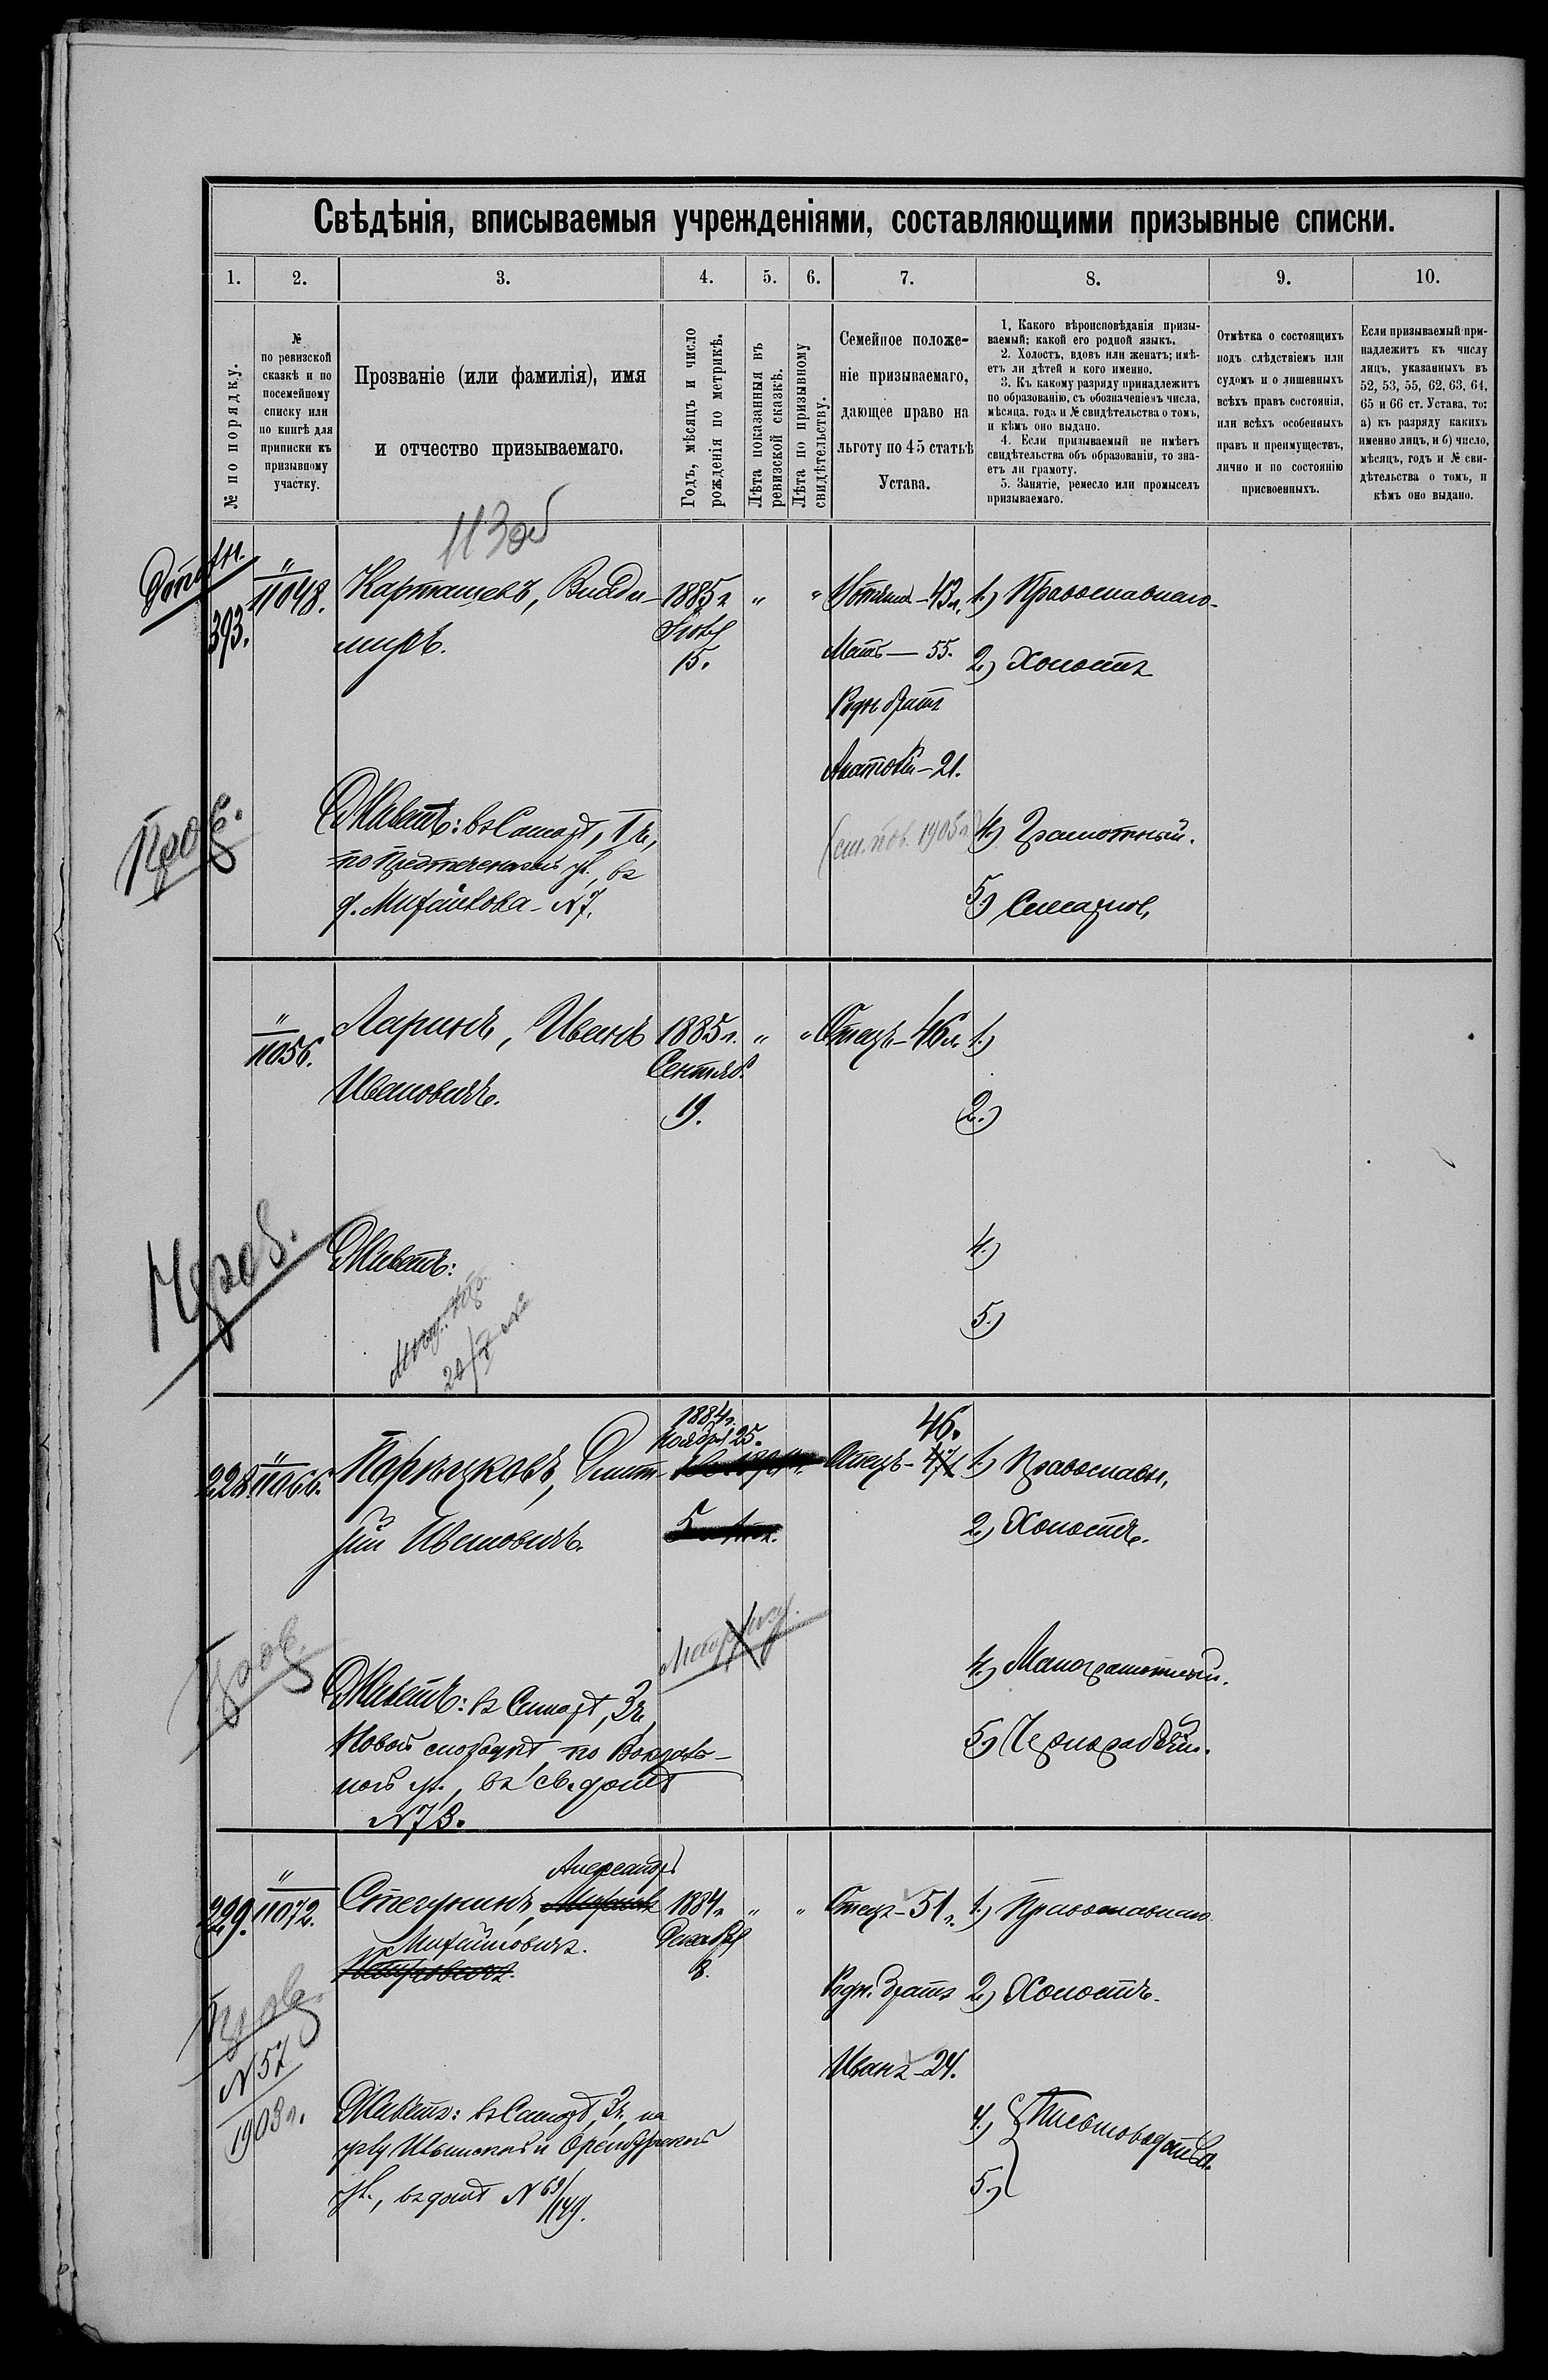 Свѣдѣнія, вписываемыя учрежденіями, составляющими призывные списки.
1.
2.
3.
4.
5.
6.
7.
8.
9.
10.
№ по порядку.
№
по ревизской
сказкѣ и по
посемейному
списку или
по книгѣ для
приписки къ
призывному
участку.
Прозваніе (или фамилія), имя
и отчество призываемаго.
Годъ, мѣсяцъ и число
рожденія по метрикѣ.
Лѣта показанныя въ
ревизской сказкѣ.
Лѣта по призывному
свидѣтельству.
Семейное положе-
ніе призываемаго,
дающее право на
льготу по 45 статьѣ
Устава.
1. Какого вѣроисповѣданія призы-
ваемый; какой его родной языкъ.
2. Холостъ, вдовъ или женатъ; имѣ-
етъ ли дѣтей и кого именно.
3. Къ какому разряду принадлежитъ
по образованію, съ обозначеніемъ числа,
мѣсяца, года и № свидѣтельства о томъ,
и кѣмъ оно выдано.
4. Если призываемый не имѣетъ
свидѣтельства объ образованіи, то зна-
етъ ли грамоту.
5. Занятіе, ремесло или промыселъ
призываемаго.
Отмѣтка о состоящихъ
подъ слѣдствіемъ или
судомъ и о лишенныхъ
всѣхъ правъ состоянія,
или всѣхъ особенныхъ
правъ и преимуществъ,
лично и по состоянію
присвоенныхъ.
Если призываемый при-
надлежитъ къ числу
лицъ, указанныхъ въ
52, 53, 55, 62, 63, 64,
65 и 66 ст. Устава, то:
а) къ разряду какихъ
именно лицъ, и б) число,
мѣсяцъ, годъ и № сви-
дѣтельства о томъ, и
кѣмъ оно выдано.
393.
"
11048.
Карташевъ, Влади-
миръ.
1885 г.
15.
"
"
Мать — 55.
Родн. братъ
Анатолій - 21.
1.) Православнаго
2.) Холостъ
4.) Грамотный.
5.)
Живетъ: въ Самарѣ, 1 ч.,
по Предтеченской ул., въ
д. Михайлова - № 7.
Пров.
"
11056.
Ларинъ, Иванъ
Ивановичъ.
1885 г.
Сентяб.
19.
"
"
Отецъ - 46 л.
1.)
2.)
4.)
5.)
Живетъ:
Пров.
228.
"
11066.
Дмит-
рій Ивановичъ.
1884 г.
Ноября 25.
46.
Отецъ - 47
1.) Православн.
2.) Холостъ.
4.) Малограмотный.
5.) Чернорабочій.
Живетъ: въ Самарѣ, 3 ч.,
Новой слободкѣ, по Вокзаль-
ной ул., въ св. домѣ
№ 73.
Пров.
229.
"
11072.
Александръ
Стегунинъ,
Михайловичъ.
1884 г.
Декабря
8.
"
"
Отецъ - 51 г.
Родн. братъ
Иванъ - 24.
1.) Православнаго
2.) Холостъ.
4.) Письмоводитель.
5.)
Живетъ: въ Самарѣ, 3 ч., на
углу Ильинской и Оренбургской
ул., въ домѣ № 69/149.
Пров.
№ 57
1903 г.